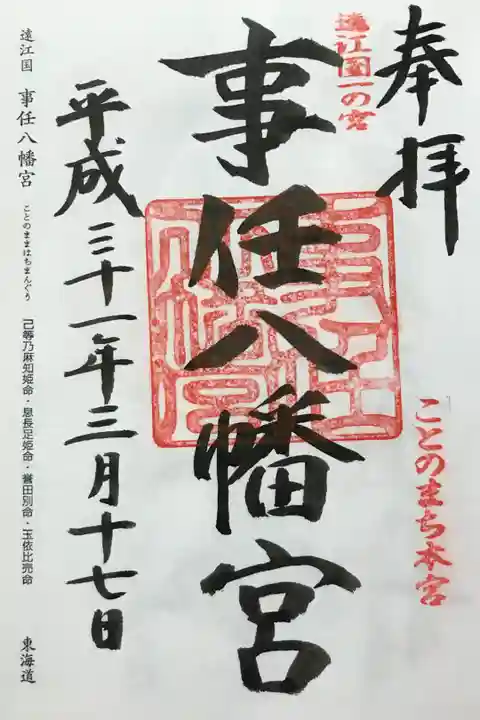 奉拝
ことのまち本宮
遠江国一の宮
事任八幡宮
平成三十一年三月十七日
遠江国 事任八幡宮 ことのままはちまんぐう 己等乃麻知姫命・息長足姫命・誉田別命・玉依比売命 東海道